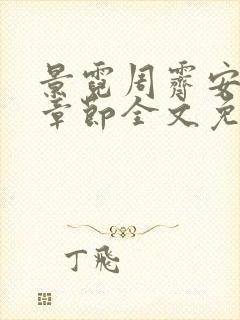 景霓周霽安
章節全文免
丁飛